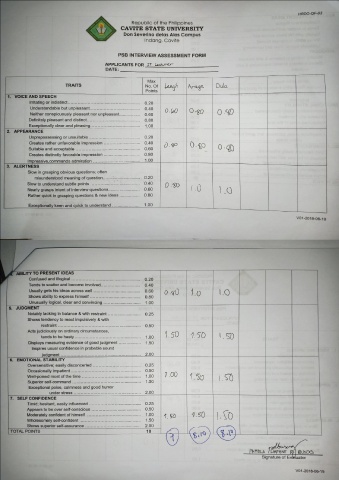 HRDO-QF-03
Republic of the Philippines
CAVITE STATE UNIVERSITY
Don Severino delas Alas Campus
Indang, Cavite
PSB INTERVIEW ASSESSMENT FORM
APPLICANTS FOR
DATE:
TRAITS Max No. Of Points
1. VOICE AND SPEECH
Irritating or indistinct 0.20
Understandable but unpleasant 0.40
Neither conspicuously pleasant nor unpleasant 0.60 0.60 0.80 0.80
Definitely pleasant and distinct 0.80
Exceptionally clear and pleasing 1.00
2. APPEARANCE
Unprepossessing or unsuitable 0.20
Creates rather unfavorable impression 0.40
Suitable and acceptable 0.60 0.80 0.80
Creates distinctly favorable impression 0.80
Impressive, commands admiration 1.00
3. ALERTNESS
Slow in grasping obvious questions, often
misunderstood meaning of question 0.20
Slow to understand subtle points 0.40
Nearly grasps intent of interview questions 0.60 0.80 1.0 1.0
Rather quick in grasping questions & new ideas 0.80
Exceptionally keen and quick to understand 1.00
V01-2018-06-19
4. ABILITY TO PRESENT IDEAS
Confused and illogical 0.20
Tends to scatter and become involved 0.40
Usually gets his ideas across well 0.60 1.0 1.0
Shows ability to express himself 0.80
Unusually logical, clear and convincing 1.00
5. JUDGMENT
Notably lacking in balance & with restraint 0.25
Shows tendency to react impulsively & with
restraint 0.50
Acts judiciously on ordinary circumstances,
tends to be hasty 1.00
Displays reassuring evidence of good judgment 1.50 1.50 1.50 1.50
Inspires usual confidence in probable sound
judgment 2.00
6. EMOTIONAL STABILITY
Oversensitive, easily disconcerted 0.25
Occasionally impatient 0.50
Well-poised most of the time 1.00 1.50 1.50
Superior self-command 1.50
Exceptional poise, calmness and good humor
under stress 2.00
7. SELF CONFIDENCE
Timid, hesitant, easily influenced 0.25
Appears to be over self-conscious 0.50
Moderately confident of himself 1.00 1.50 1.50
Wholesomely self-confident 1.50
Shows superior self-assurance 2.00
TOTAL POINTS 10 8.10 8.10
Signature of Evaluator
V01-2018-06-19